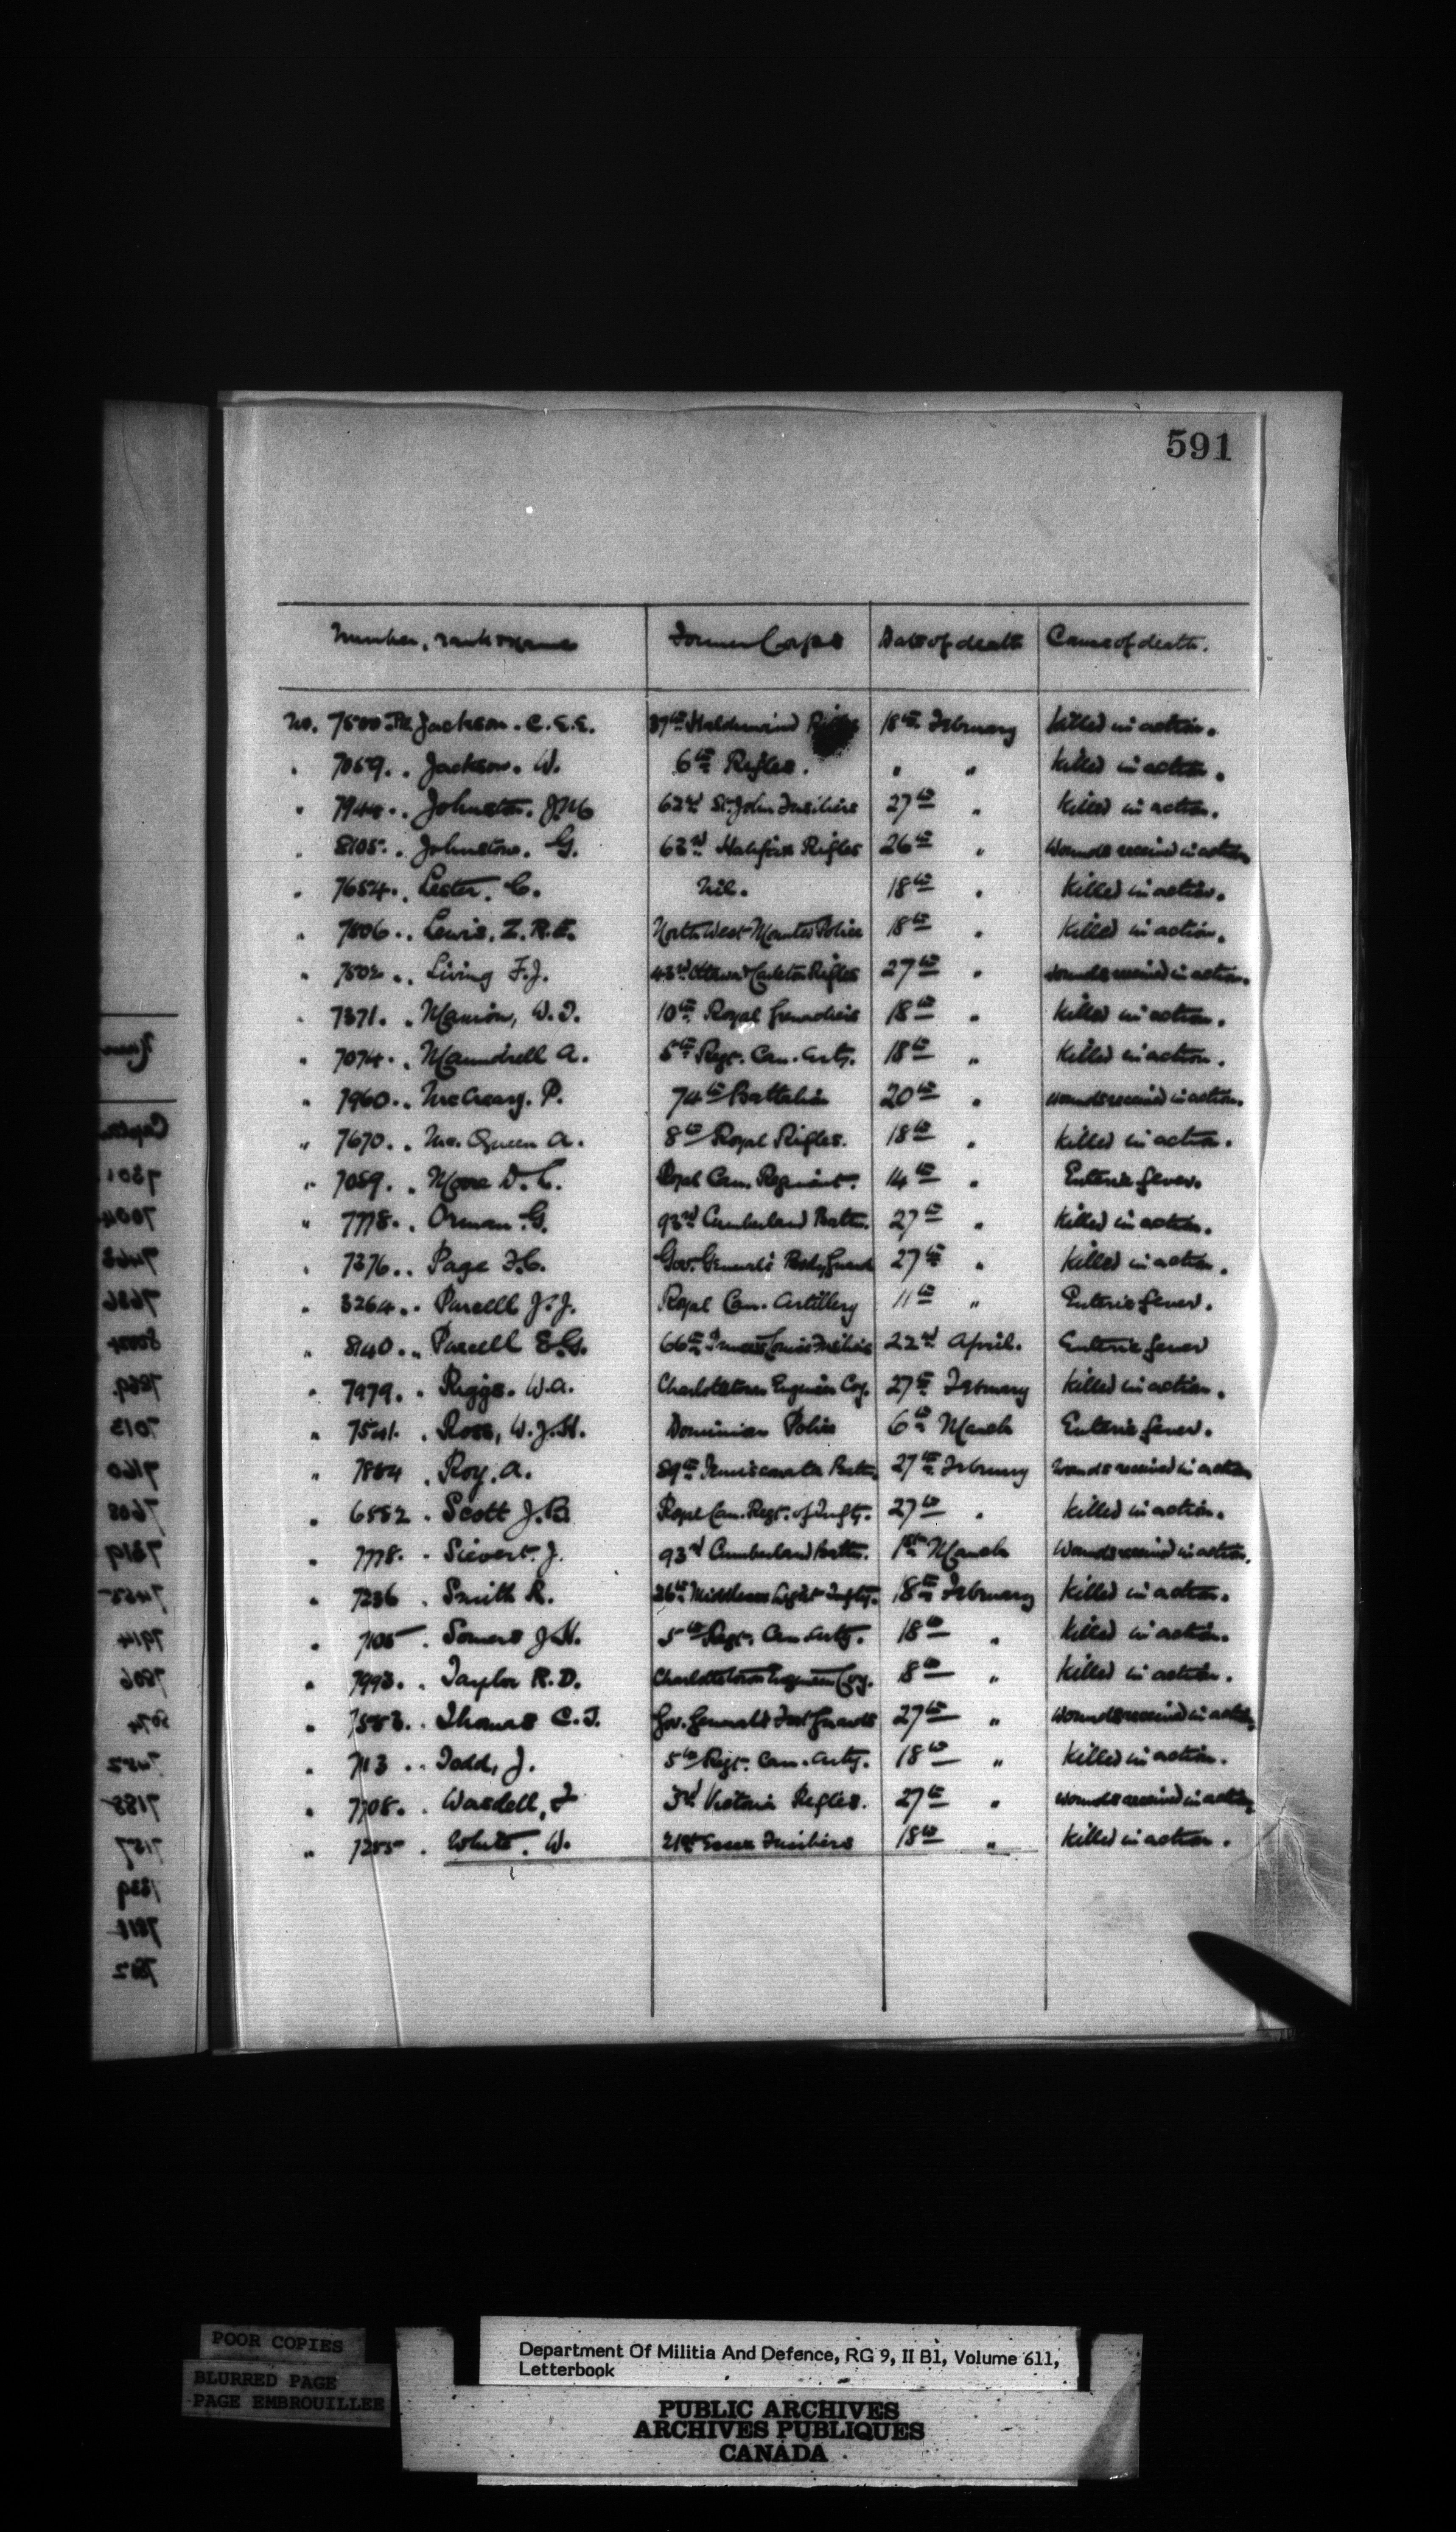 591
Number, rank & Name Former Corps Date of death Cause of death.
No. 7500 Pte. Jackson. C.E.E. 37th Haldimand Rifles 18th February Killed in action.
" 7059. " Jackson. W. 6th Rifles. " " Killed in action.
" 7944. " Johnston. J.M. 62nd St. John Fusiliers 27th " Killed in action.
" 8105. " Johnstone. G. 63rd Halifax Rifles 26th " Wounds received in action
" 7654. " Lester. C. Nil. 18th " Killed in action.
" 7806. " Lewis. Z.R.E. North West Mounted Police 18th " Killed in action.
" 7502. " Living F.J. 43rd Ottawa & Carleton Rifles 27th " Wounds received in action.
" 7371. " Manion, W.T. 10th Royal Grenadiers 18th " Killed in action.
" 7074. " Maundrell A. 5th Regt. Can. Arty. 18th " Killed in action.
" 7960. " McCreary. P. 74th Battalion 20th " Wounds received in action.
" 7670. " Mc.Queen A. 8th Royal Rifles. 18th " Killed in action.
" 7059. " Moore D.C. Royal Can. Regiment. 14th " Enteric fever.
" 7778. " Orman. G. 93rd Cumberland Battn. 27th " Killed in action.
" 7376. " Page F.C. Gov. General's Body Guard 27th " Killed in action.
" 3264. " Purcell J.J. Royal Can. Artillery 11th " Enteric fever.
" 8140. " Purcell E.G. 66th Princess Louise Fusiliers 22nd April. Enteric fever
" 7979. " Riggs. W.A. Charlottetown Engineer Coy. 27th February Killed in action.
" 7541. " Ross, W.J.H. Dominion Police 6th March Enteric fever.
" 7864 " Roy. A. 89th Temiscouata Battn. 27th February Wounds received in action
" 6552 " Scott J.B. Royal Can. Regt. of Infty. 27th " Killed in action.
" 7778. " Sievert. J. 93rd Cumberland Battn. 1st March Wounds received in action.
" 7236 " Smith R. 26th Middlesex Light Infty. 18th February Killed in action.
" 7105 " Somers J.H. 5th Regt. Can. Arty. 18th " Killed in action.
" 7993. " Taylor R.D. Charlottetown Engineer Coy. 18th " Killed in action.
" 7553. " Thomas C.T. Gov. General's Foot Guards 27th " Wounds received in action
" 7113 " Todd, J. 5th Regt. Can. Arty. 18th " Killed in action.
" 7108. " Wasdell, F 3rd Victoria Rifles. 27th " Wounds received in action
" 7255 " White. W. 21st Essex Fusiliers 18th " Killed in action.
POOR COPIES
BLURRED PAGE
PAGE EMBROUILLEE
Department Of Militia And Defence, RG 9, II B1, Volume 611,
Letterbook
PUBLIC ARCHIVES
ARCHIVES PUBLIQUES
CANADA